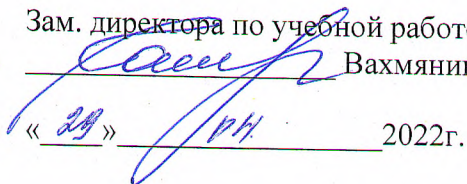 Зам. директора по учебной работ
Вахмянин
«29» 2022г.